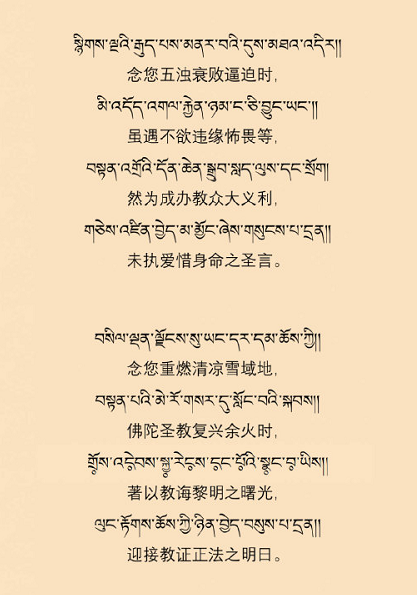 སྙིགས་ལྔའི་རྒུད་པས་མནར་བའི་དུས་མཐའ་འདིར།།
念您五浊衰败逼迫时,
མི་འདོད་འགལ་རྐྱེན་ཉམ་ང་ཅི་བྱུང་ཡང་།།
虽遇不欲违缘怖畏等,
བསྟན་འགྲོའི་དོན་ཆེན་སྒྲུབ་སླད་ལུས་དང་སྲོག།
然为成办教众大义利,
གཅེས་འཛིན་བྱེད་མ་མྱོང་ཞེས་གསུངས་པ་དྲན།།
未执爱惜身命之圣言。
བསིལ་ལྡན་ལྗོངས་སུ་ཡང་དར་དམ་ཆོས་ཀྱི།།
念您重燃清凉雪域地,
བསྟན་པའི་མེ་རོ་གསར་དུ་སློང་བའི་སྐབས།།
佛陀圣教复兴余火时,
གྲོས་འདེབས་སྐྱ་རེངས་དང་པོའི་སྣང་བ་ཡིས།།
著以教诲黎明之曙光,
ལུང་རྟོགས་ཆོས་ཀྱི་ཉིན་བྱེད་བསུས་པ་དྲན།།
迎接教证正法之明日。